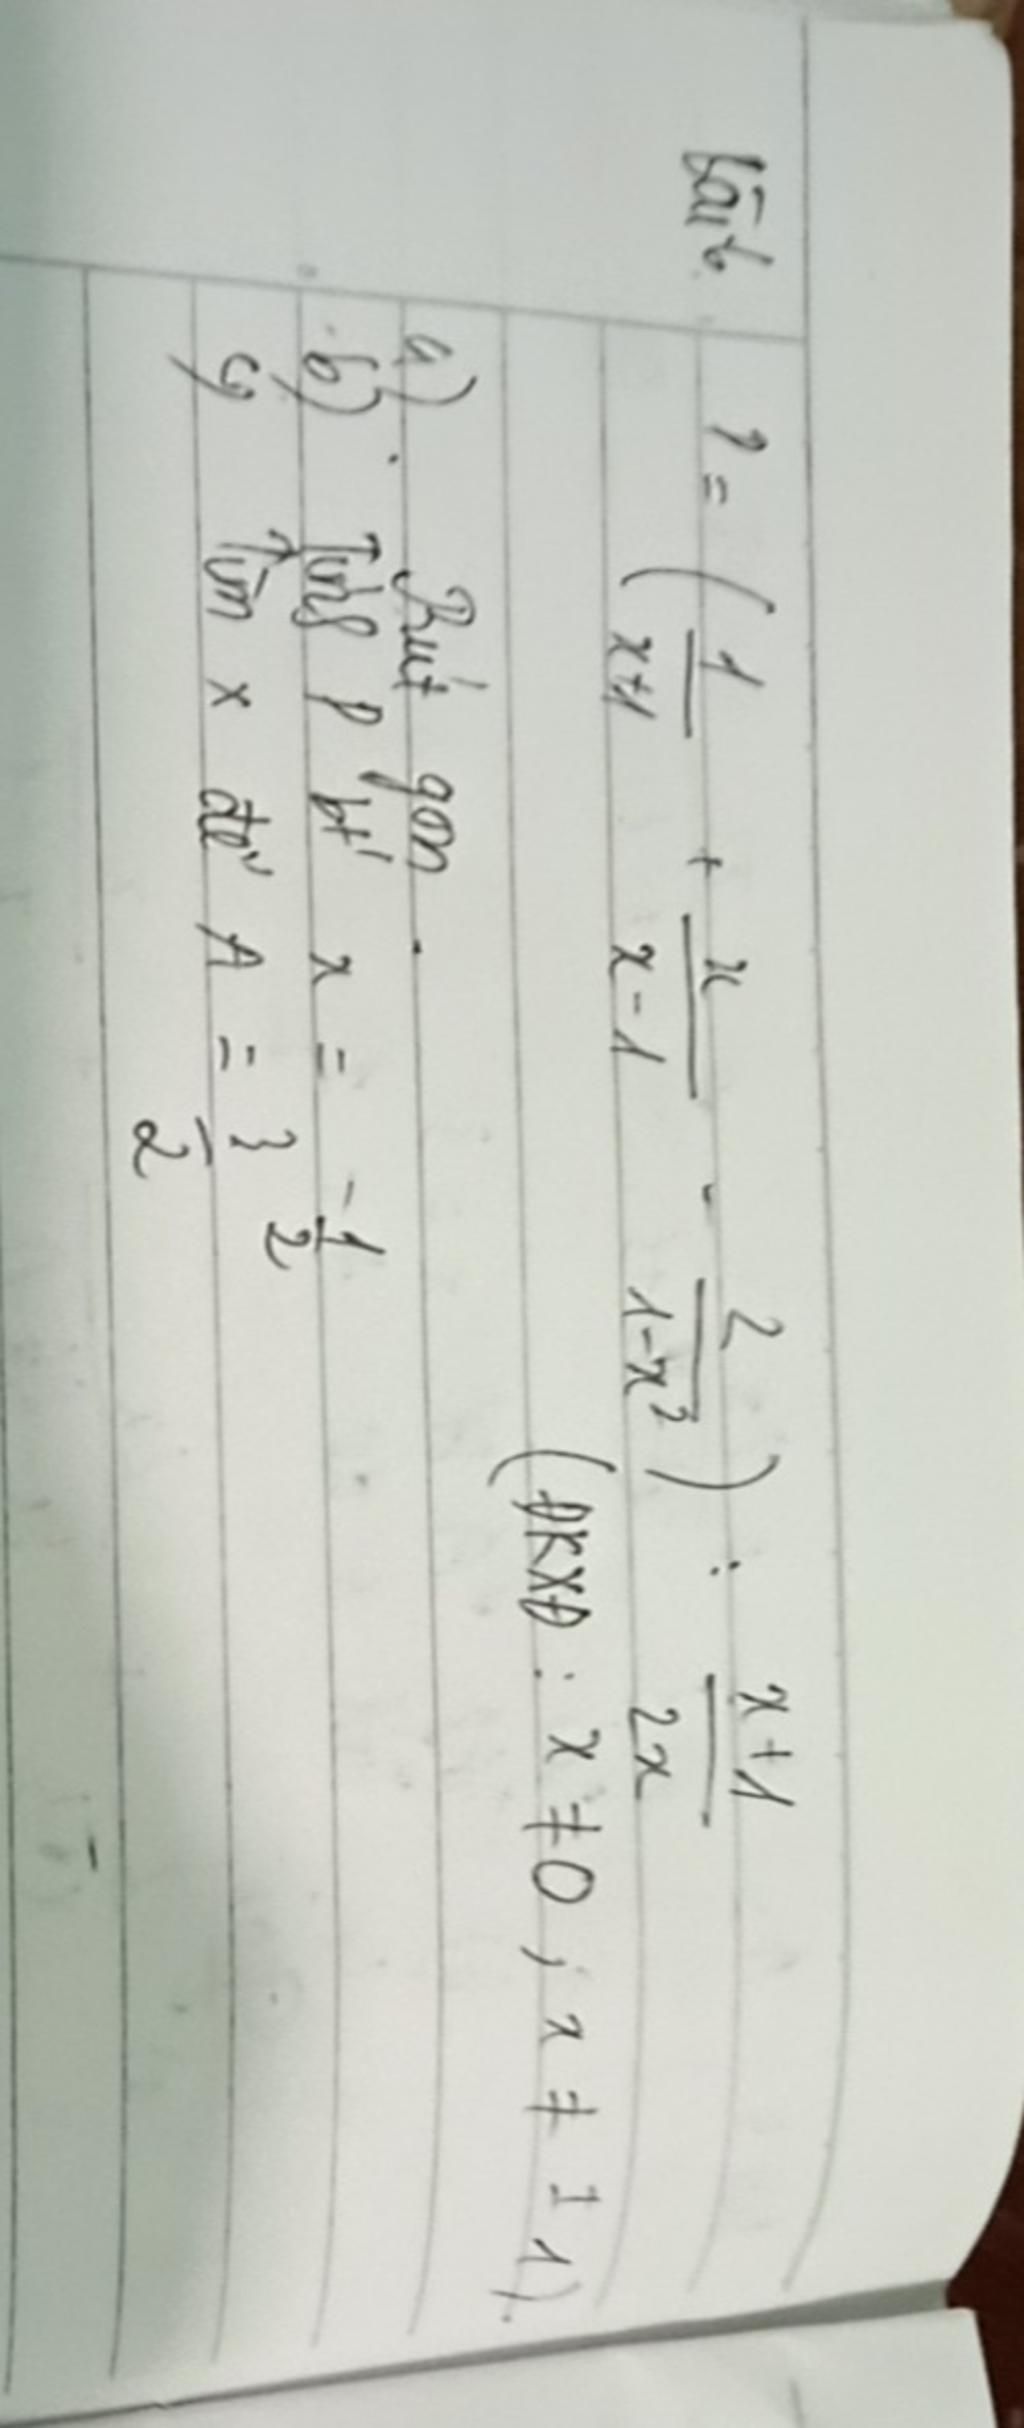 Bài 6. P = ( 1/(x+1) + x/(x-1) - 2/(1-x²) ) : (x+1)/(2x)
(ĐKXĐ : x ≠ 0, x ≠ ±1).
a) Rút gọn.
b) Tính P bt' x = -1/2
c) Tìm x để A = 3/2